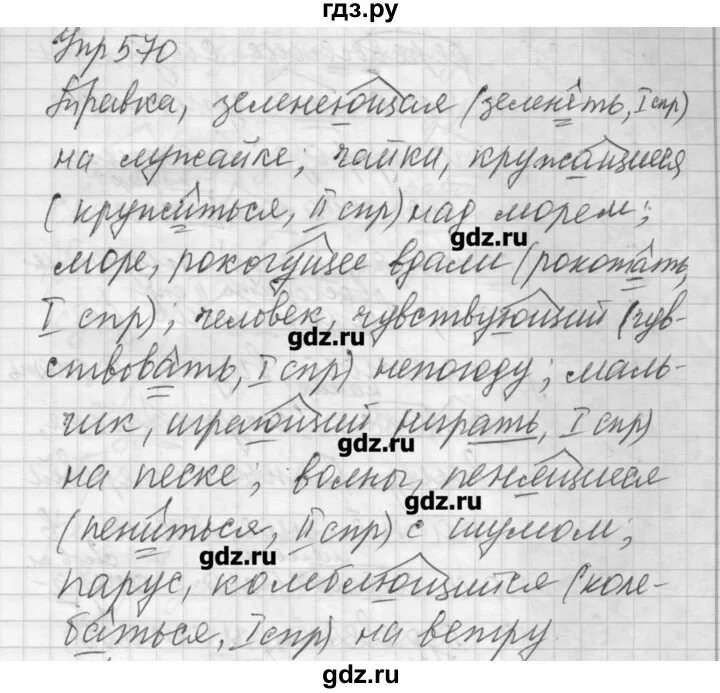 гдз.ру
Упр 570
Травка, зеленеющая (зеленеть, I спр)
на лужайке; чайки, кружащиеся
(кружиться, II спр) над морем;
gdz.ru
море, рокочущее вдали (рокотать,
I спр); человек, чувствующий (чув-
gdz.ru
ствовать, I спр) непогоду; маль-
чик, играющий играть, I спр)
gdz.ru
на песке; волны, пенящиеся
(пениться, II спр) с шумом;
gdz.ru
парус, колеблющийся (коле-
баться, I спр) на ветру.
gdz.ru